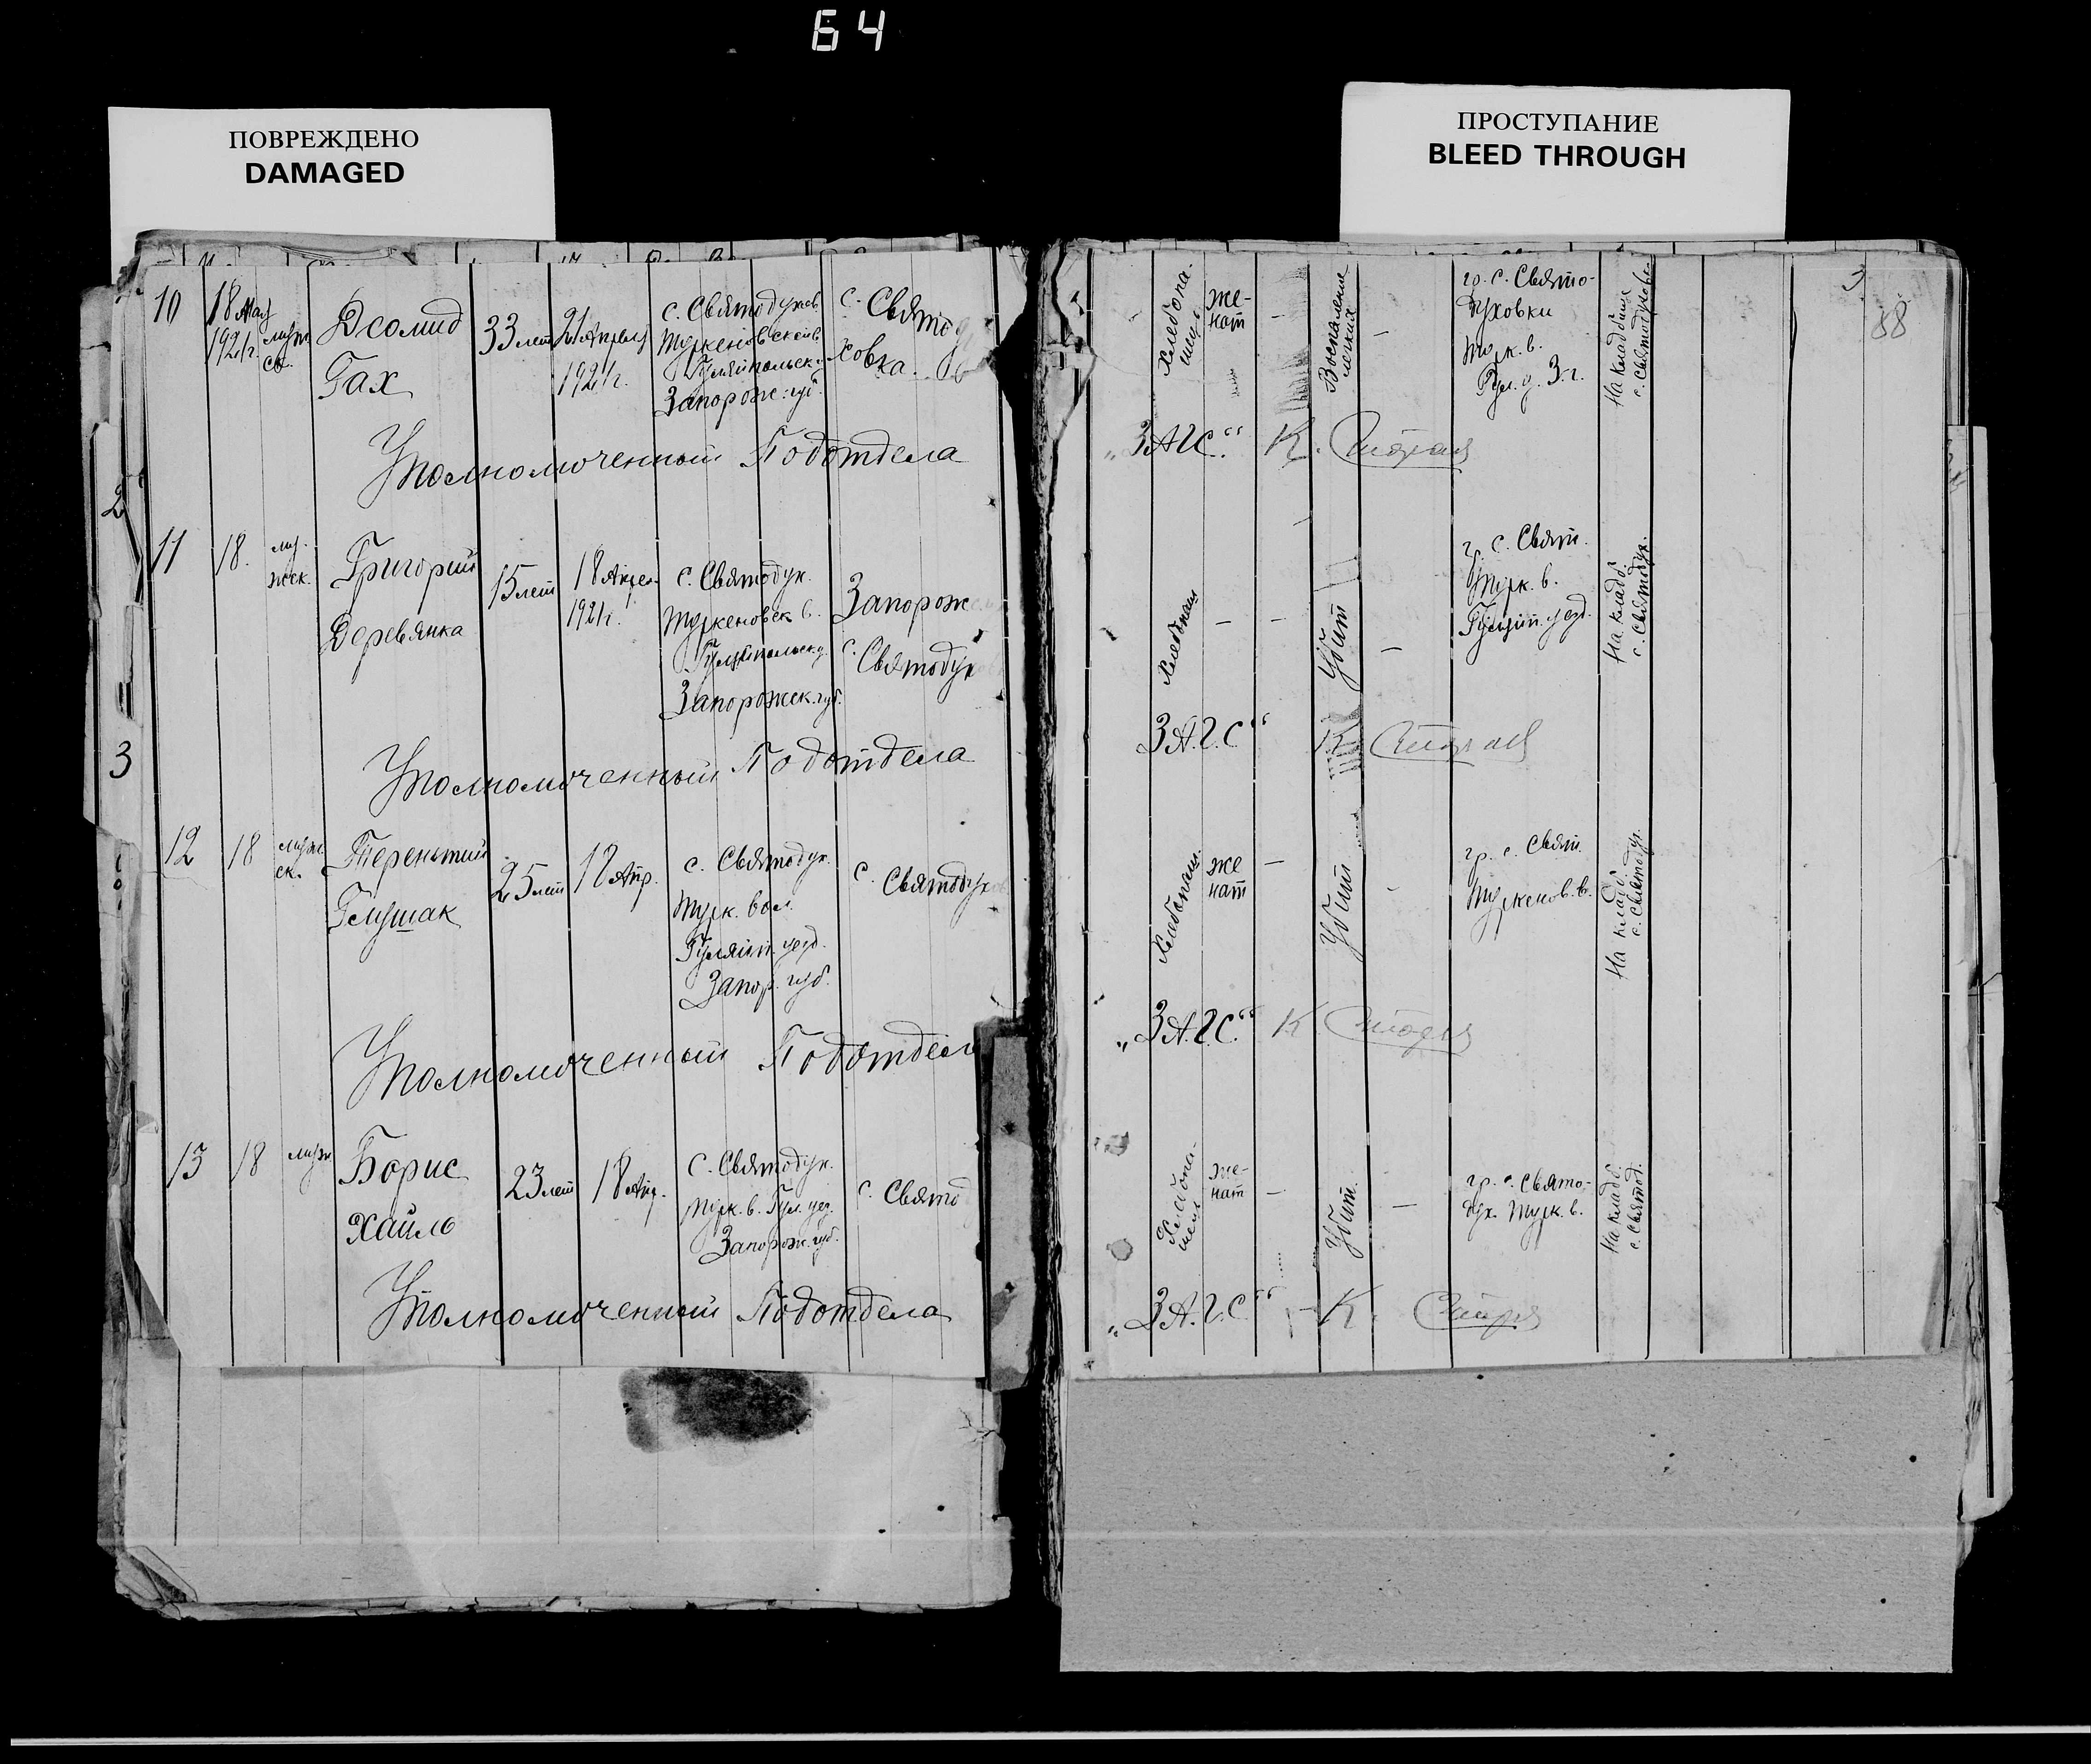 64
ПОВРЕЖДЕНО
DAMAGED
ПРОСТУПАНИЕ
BLEED THROUGH
2
3
10
18 Мая
1921г.
мужс
ск.
Деомид
Гах
33 лет
21 Апреля
1921г.
с. Святодухов.
Туркеновск. в.
Гуляйпольск. у.
Запорож. губ.
с. Святоду
ховка.
Уполномоченный Подотдела
11
18.
му-
жск.
Григорий
Деревянка
15 лет
18 Апрел.
1921г.
с. Святодух.
Туркеновск в.
Гуляйпольск. у.
Запорожск. губ.
Запорож
с. Святодух
Уполномоченный Подотдела
12
18
мужс
ск.
Терентий
Глушак
25 лет
18 Апр.
с. Святодух.
Турк. вол.
Гуляйп. уезд.
Запор. губ.
с. Святодухов
Уполномоченный Подотдела
13
18
мужс
Борис
Хайло
23 лет
18 Апр.
с. Святодух.
Турк. в. Гул. уез.
Запорож. губ.
с. Святод
Уполномоченный Подотдела
Хлебопа-
шец
же-
нат
—
Воспаление
легких
—
гр. с. Свято-
духовки
Турк. в.
Гул. у. З. г.
На кладбище
с. Святодуховк.
88
„ЗАГС“ К.
Хлебопаш
—
—
Убит
—
г. с. Свят.
Турк. в.
Гуляйп. уезд.
На кладб.
с. Святодух.
ЗА.Г.С“ К
Хлебопаш.
же
нат
—
Убит
-
гр. с. Свят.
Туркенов. в.
На кладб.
с. Святодух.
„ЗА.ГС.“ К
Хлебопа-
шец
же-
нат
—
Убит.
—
гр. с. Свято-
дух. Турк. в.
На кладб.
с. Святод.
„ЗА.Г.С“ К.